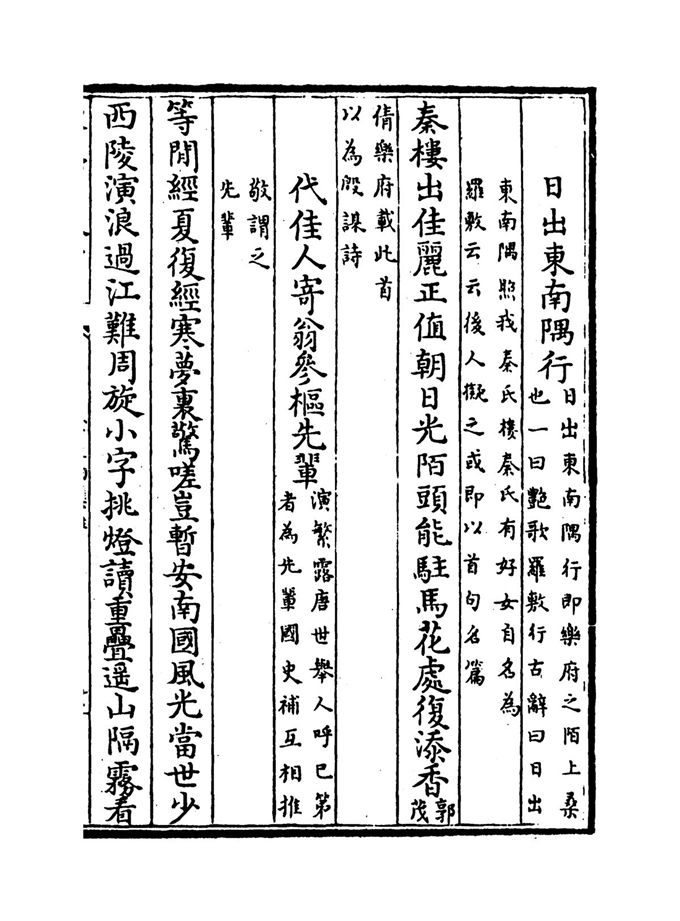 日出東南隅行日出東南隅行即樂府之陌上桑
也一曰艶歌羅敷行古辭曰日出
東南隅照我秦氏樓秦氏有好女自名為
羅敷云云後人擬之或即以首句名篇
秦樓出佳麗正值朝日光陌頭能駐馬花處復添香郭
茂
倩樂府載此首
以為殷謀詩
代佳人寄翁參樞先輩演繁露唐世舉人呼已第
者為先輩國史補互相推
敬謂之
先輩
等閒經夏復經寒夢裏驚嗟豈暫安南國風光當世少
西陵演浪過江難周旋小字挑燈讀重疊遥山隔霧看